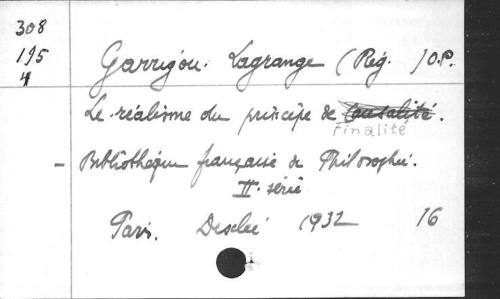 308
195
4
Garrigou. Lagrange (Rég. ) O.P.
Le réalisme du principe de Causalité.
Finalité
- Bibliothèque française de Philosophie.
II. série
Paris. Desclée 1932 16